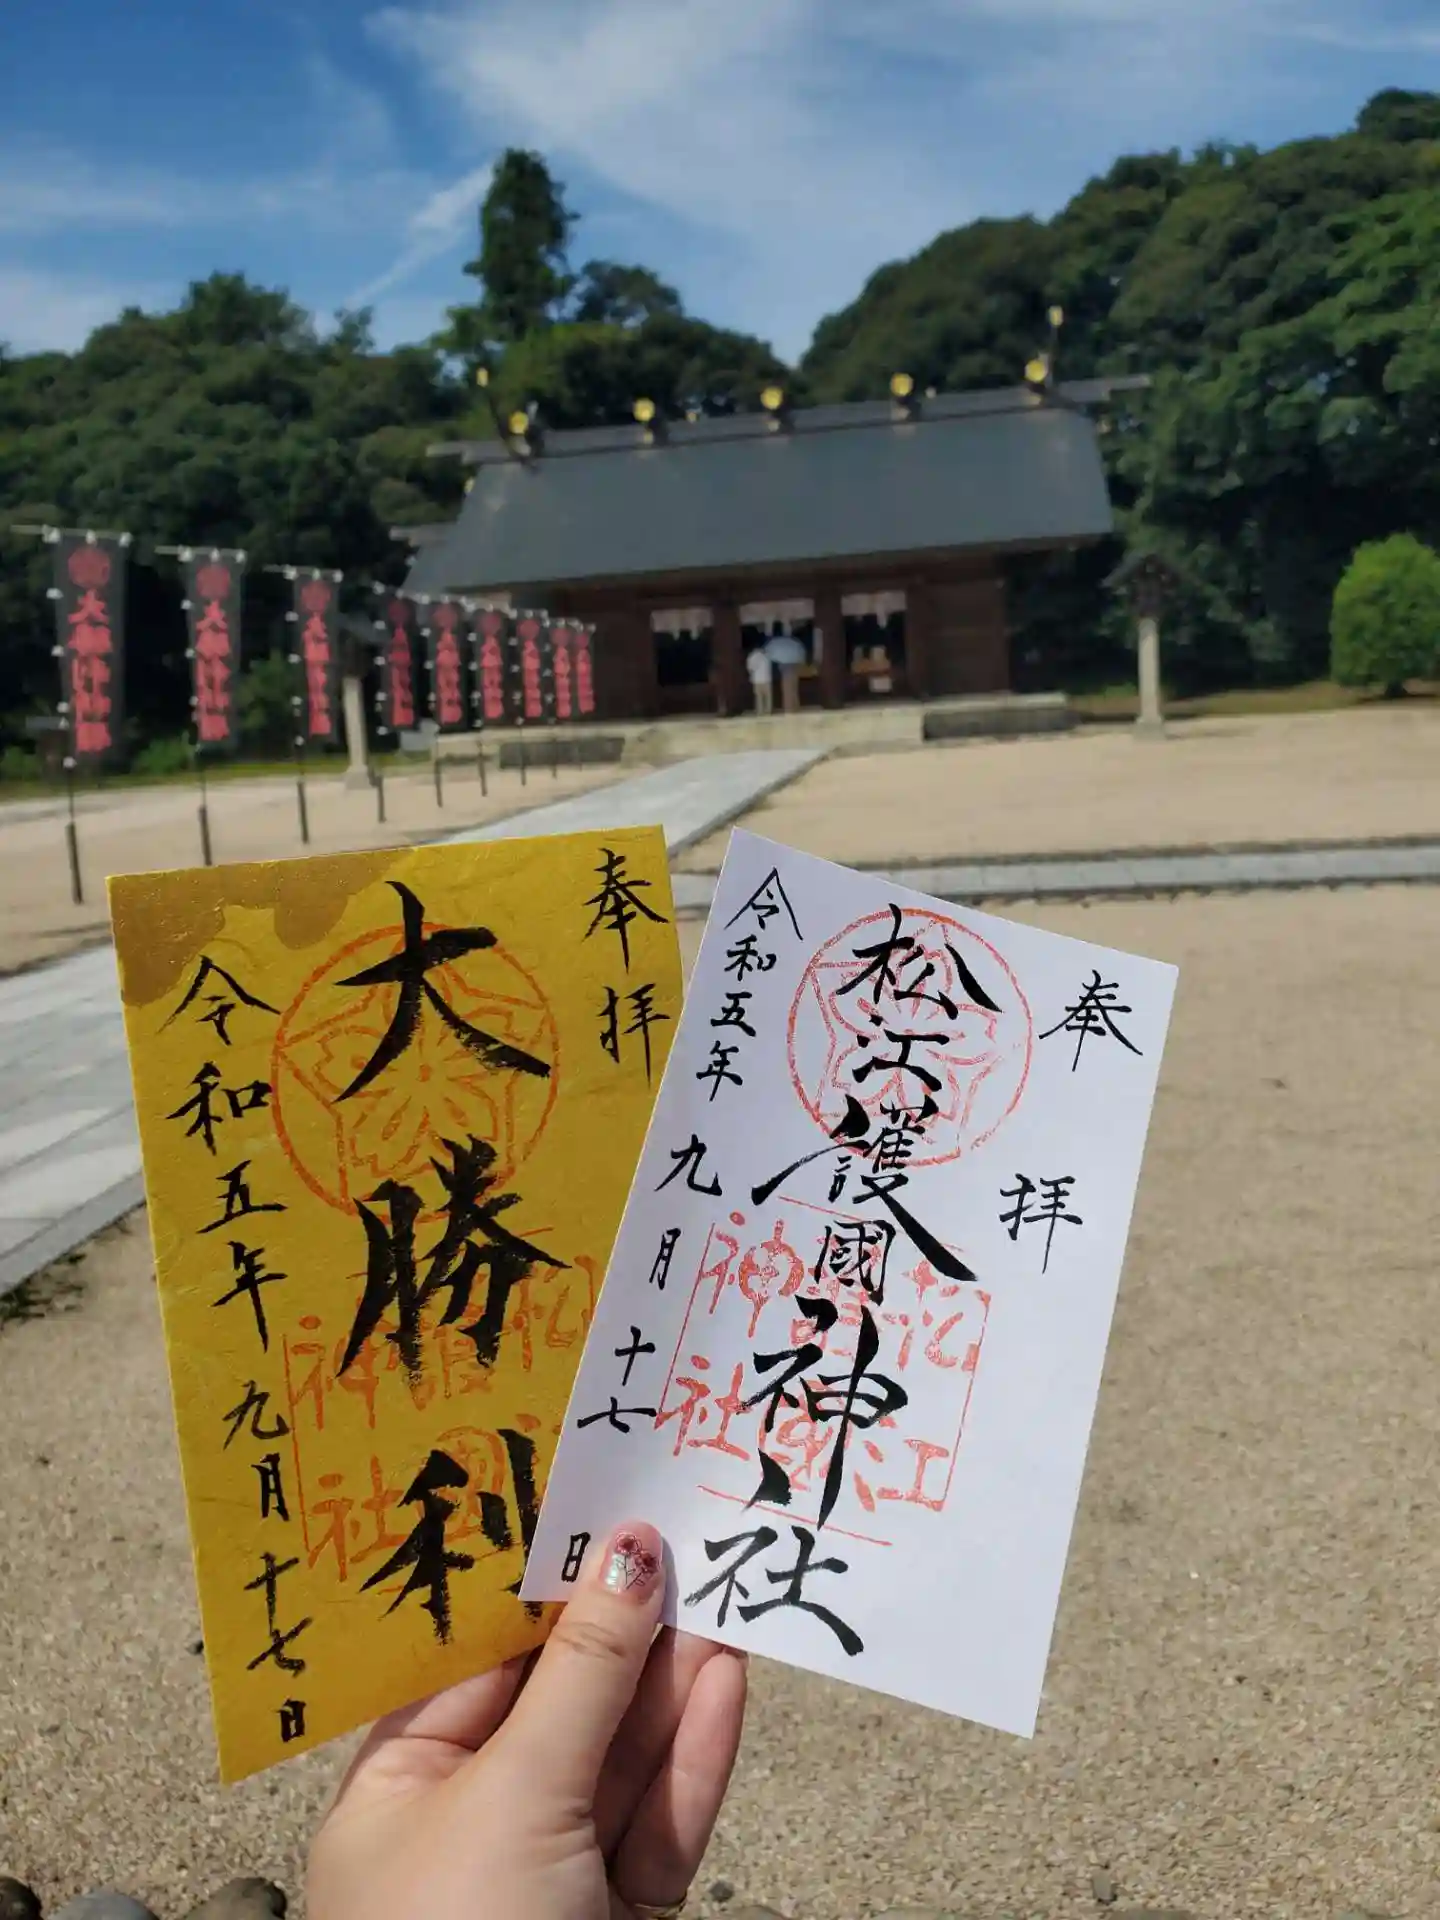 奉拝
大勝利
令和五年九月十七日
奉拝
松江護國神社
令和五年九月十七日
松江
護國
神社